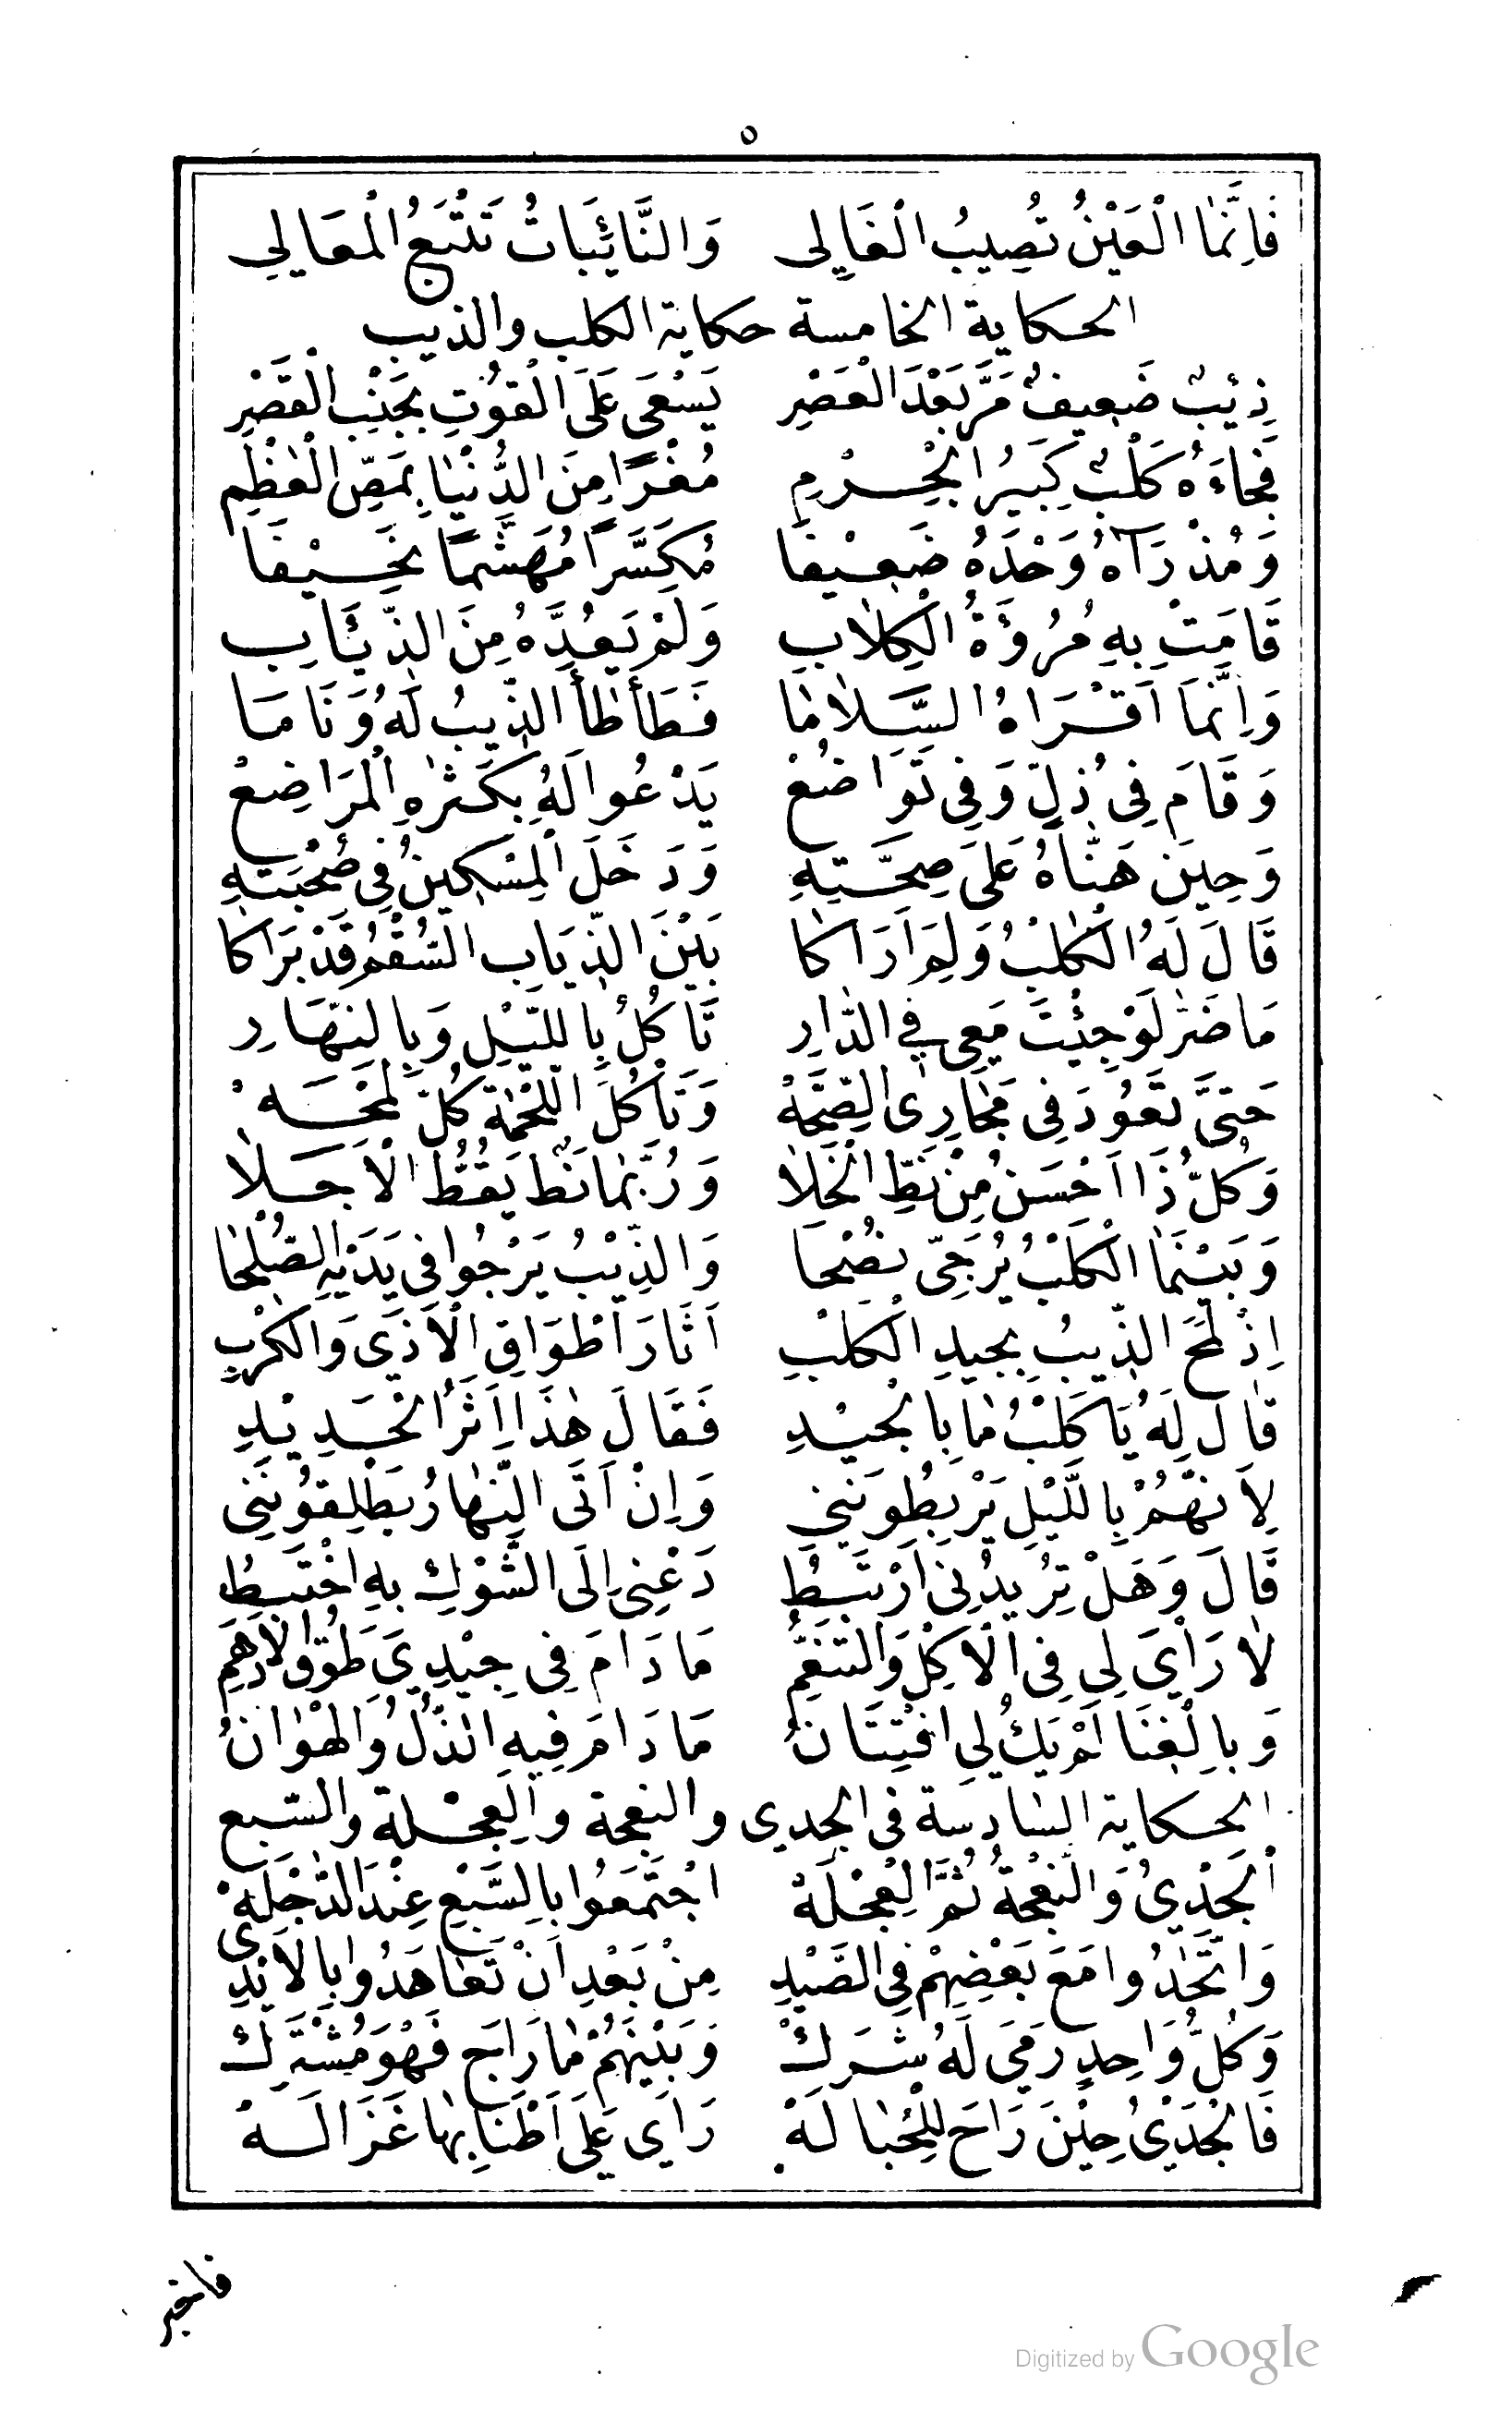 ٥
فَاِنَّمَا الْعَيْنُ تُصِيبُ الْغَالِى وَالنَّائِبَاتُ تَتْبَعُ الْمَعَالِي
الحكاية الخامسة حكاية الكلب والذيب
ذِئيبٌ ضَعِيفٌ مَرَّ بَعْدَ الْعَصْرِ يَسْعَى عَلَى الْقُوتِ بِجَنْبِ الْقَصْرِ
فَجَاءَهُ كَلْبٌ كَبِيرُ الْجِرْمِ مُغْرًا مِنَ الدُّنْيَا بِمَصِّ الْعَظْمِ
وَمُذْ رَآهُ وَحْدَهُ ضَعِيْفَا مُكَسَّرًا مُهَشَّمًا نَحِيْفَا
قَامَتْ بِهِ مُرُؤَةُ الْكِلَابِ وَلَمْ يَعُدَّهُ مِنَ الذِّئَابِ
وَاِنَّمَا اَقْرَاهُ السَّلَامَا فَطَأْطَأَ الذِّيبُ لَهُ وَنَامَا
وَقَامَ فِى ذُلٍّ وَفِى تَوَاضُعْ يَدْعُوا لَهُ بِكَثْرَهِ الْمَرَاضِعْ
وَحِيَن هَنَّاهُ عَلَى صِحَّتِهِ وَدَخَلَ الْمِسْكِينُ فِى صُحْبَتِهِ
قَالَ لَهُ الْكَلْبُ وَلِمَ اَرَاكَا بَيْنَ الذِّيَابِ السُّقْمُ قَدْ بَرَاكَا
مَا ضَرَّ لَوْ جِئْتَ مَعِى فِى الدَّارِ تَاكُلُ بِاللَّيْلِ وَبِالنَّهَارِ
حَتَّى تَعُودَ فِى مَجَارِى الصِّحَّهْ وَتَأْكُلَ اللَّحْمَةَ كُلَّ لَمْحَهْ
وَكُلُّ ذَا اَحْسَنُ مِنْ نَطِّ الْخَلَا وَرُبَّمَا نَطٌّ يَقُطُّ الْاَجَلَا
وَبَيْنَمَا الْكَلْبُ يُرَجِّى نُصْحَا وَالذِّيْبُ يَرْجُوا فِى يَدَيْهِ الصُّلْحَا
اِذْ لَمَحَ الذِّيبُ بِجِيدِ الْكَلْبِ آثَارَ اَطْوَاقِ الْاَذَى وَالْكَرْبِ
قَالَ لَهُ يَا كَلْبُ مَا بِالْجِيْدِ فَقَالَ هٰذَا اَثَرُ الْحَدِيْدِ
لِاَنَّهُمْ بِاللَّيْلِ يَرْبِطُونَنِي وَاِنْ اَتَى النَّهَارُ يَطْلِقُونَنِي
قَالَ وَهَلْ تِرُيدُنِى اَرْتَبِطُ دَعْنِى اِلَى الشَّوْكِ بِهِ اخْتَبِطُ
لَا رَأْيَ لِي فِى الْاَكْلِ وَالتَّنَعُّمِ مَا دَامَ فِى جِيْدِيَ طَوْقُ الْاَدْهَمِ
وَبِالْغِنَا لَمْ يَكُ لِي افْتِتَانُ مَا دَامَ فِيهِ الذُّلُ وَالْهَوَانُ
الحكاية السادسة فى الجدى والنعجة والعجلة والسبع
اَلْجَدْيُ وَالنَّعْجَةُ ثُمَّ الْعِجْلَهْ اجْتَمَعُوا بِالسَّبْعِ عِنْدَ الدَّجْلَهْ
وَاتَّحَدُوا مَعَ بَعْضِهِمْ فِى الصَّيْدِ مِنْ بَعْدِ اَنْ تَعَاهَدُوا بِالْاَيْدِى
وَكُلُّ وَاحِدٍ رَمَى لَهُ شَرَكْ وَبَيْنَهُمْ مَا رَاجَ فَهْوَ مُشْتَرَكْ
فَالْجَدْيُ حِيْنَ رَاحَ لِلْحُبَالَهْ رَاَى عَلَى اَطْنَابِهَا غَزَالَهْ
Digitized by Google